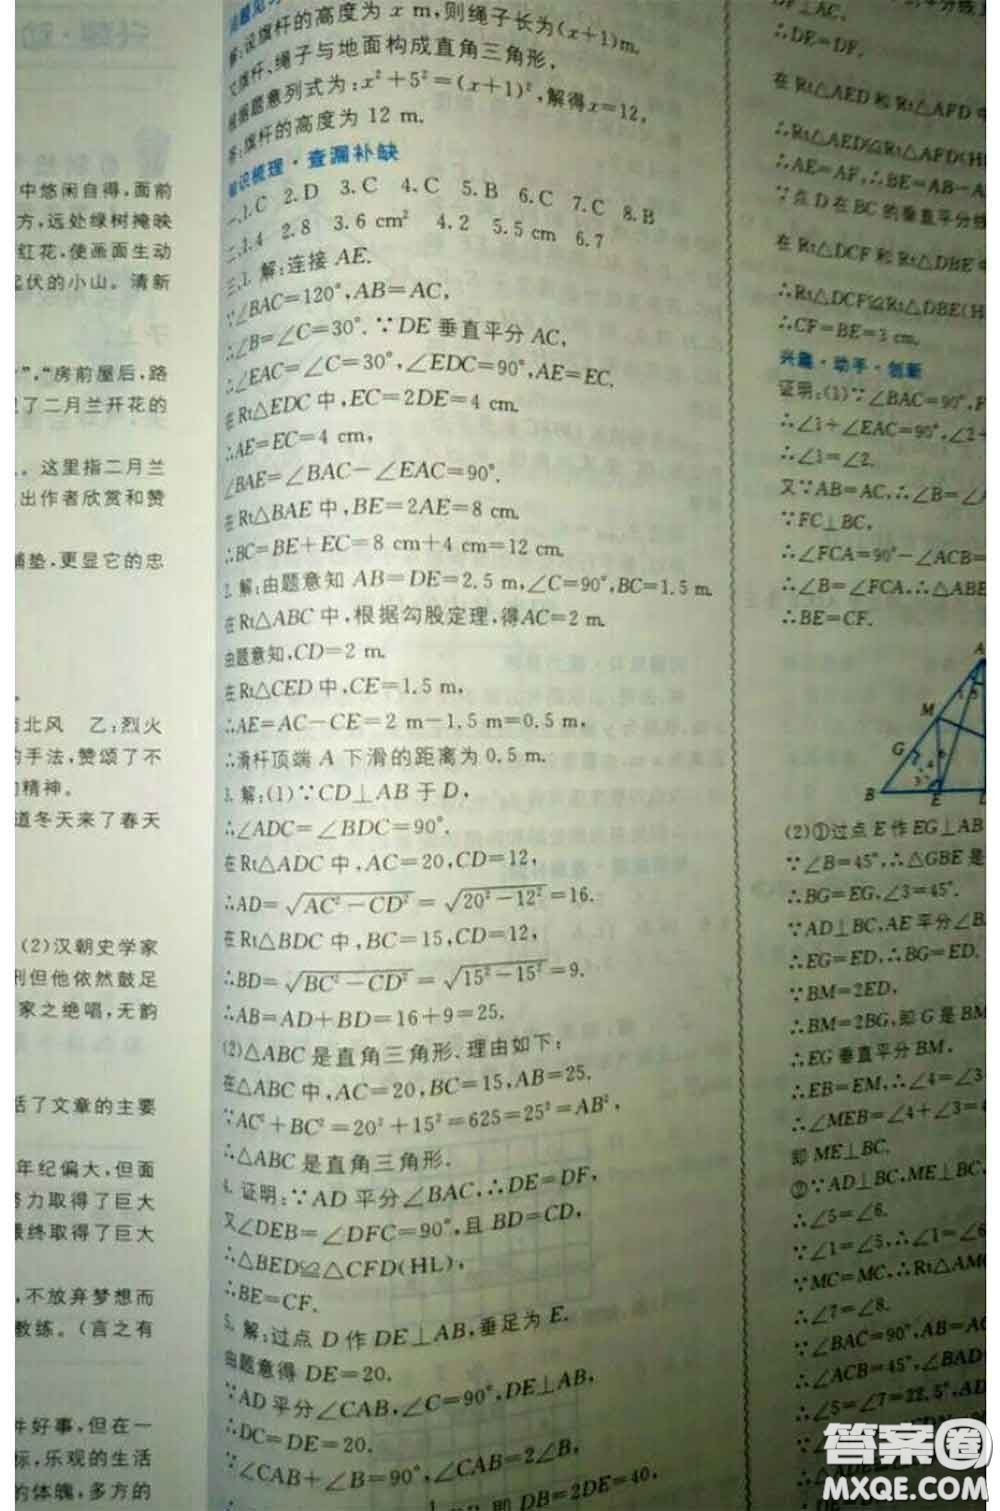 中悠闲自得,面前
方,远处绿树掩映
红花,使画面生动
起伏的小山。清新
”,“房前屋后,路
了二月兰开花的
。这里指二月兰
出作者欣赏和赞
铺垫,更显它的忠
北风 乙:烈火
的手法,赞颂了不
精神。
道冬天来了春天
(2)汉朝史学家
刑但他依然鼓足
家之绝唱,无韵
括了文章的主要
年纪偏大,但面
努力取得了巨大
最终取得了巨大
,不放弃梦想而
教练。(言之有
件好事,但在一
标,乐观的生活
的体魄,多方的
解:设旗杆的高度为 x m,则绳子长为(x+1)m.
又旗杆、绳子与地面构成直角三角形,
根据题意列式为:x²+5²=(x+1)²,解得x=12,
答:旗杆的高度为 12 m.
知识梳理·查漏补缺
一、1.C 2.D 3.C 4.C 5.B 6.C 7.C 8.B
二、1.4 2.8 3.6 cm² 4.2 5.5 cm 6.7
三、1. 解:连接 AE.
∵∠BAC=120°,AB=AC,
∴∠B=∠C=30°.∵DE 垂直平分 AC,
∴∠EAC=∠C=30°,∠EDC=90°,AE=EC.
在 Rt△EDC 中,EC=2DE=4 cm.
∴AE=EC=4 cm,
∠BAE=∠BAC-∠EAC=90°.
在 Rt△BAE 中,BE=2AE=8 cm.
∴BC=BE+EC=8 cm+4 cm=12 cm.
2. 解:由题意知 AB=DE=2.5 m,∠C=90°,BC=1.5 m.
在 Rt△ABC 中,根据勾股定理,得AC=2 m.
由题意知,CD=2 m.
在 Rt△CED 中,CE=1.5 m,
∴AE=AC-CE=2 m-1.5 m=0.5 m,
∴滑杆顶端 A 下滑的距离为 0.5 m.
3. 解:(1)∵CD⊥AB 于 D,
∴∠ADC=∠BDC=90°.
在 Rt△ADC 中,AC=20,CD=12,
∴AD=√(AC²-CD²)=√(20²-12²)=16.
在 Rt△BDC 中,BC=15,CD=12,
∴BD=√(BC²-CD²)=√(15²-15²)=9.
∴AB=AD+BD=16+9=25.
(2)△ABC 是直角三角形.理由如下:
在△ABC 中,AC=20,BC=15,AB=25.
∵AC²+BC²=20²+15²=625=25²=AB²,
∴△ABC 是直角三角形.
4. 证明:∵AD 平分∠BAC,∴DE=DF,
又∠DEB=∠DFC=90°,且 BD=CD,
∴△BED≌△CFD(HL),
∴BE=CF.
5. 解:过点 D 作 DE⊥AB,垂足为 E.
由题意得 DE=20.
∵AD 平分∠CAB,∠C=90°,DE⊥AB,
∴DC=DE=20.
∵∠CAB+∠B=90°,∠CAB=2∠B,
即 DB=2DE=40,
DF⊥AC.
∴DE=DF.
在 Rt△AED 和 Rt△AFD 中
∴Rt△AED≌Rt△AFD(H
∴AE=AF,∴BE=AB-A
∵点 D 在 BC 的垂直平分线
在 Rt△DCF 和 Rt△DBE 中
∴Rt△DCF≌Rt△DBE(H
∴CF=BE=3 cm.
兴趣·动手·创新
证明:(1)∵∠BAC=90°,F
∴∠1+∠EAC=90°,∠2+
∴∠1=∠2.
又∵AB=AC,∴∠B=∠A
∵FC⊥BC,
∴∠FCA=90°-∠ACB=
∴∠B=∠FCA,∴△ABE
∴BE=CF.
A
M
G
B E
(2)①过点 E 作 EG⊥AB
∵∠B=45°,∴△GBE 是
∴BG=EG,∠3=45°.
∵AD⊥BC,AE平分∠B
∴EG=ED,∴BG=ED.
∵BM=2ED,
∴BM=2BG,即 G 是 BM
∴EG 垂直平分 BM.
∴EB=EM,∴∠4=∠3
∴∠MEB=∠4+∠3=
即 ME⊥BC.
②∵AD⊥BC,ME⊥BC,
∴∠5=∠6.
∵∠1=∠5,∴∠1=∠6
∵MC=MC,∴Rt△AM
∴∠7=∠8.
∵∠BAC=90°,AB=A
∴∠ACB=45°,∠BAD
∴∠5=∠7=22.5°,AD
答案圈
MXQE.COM